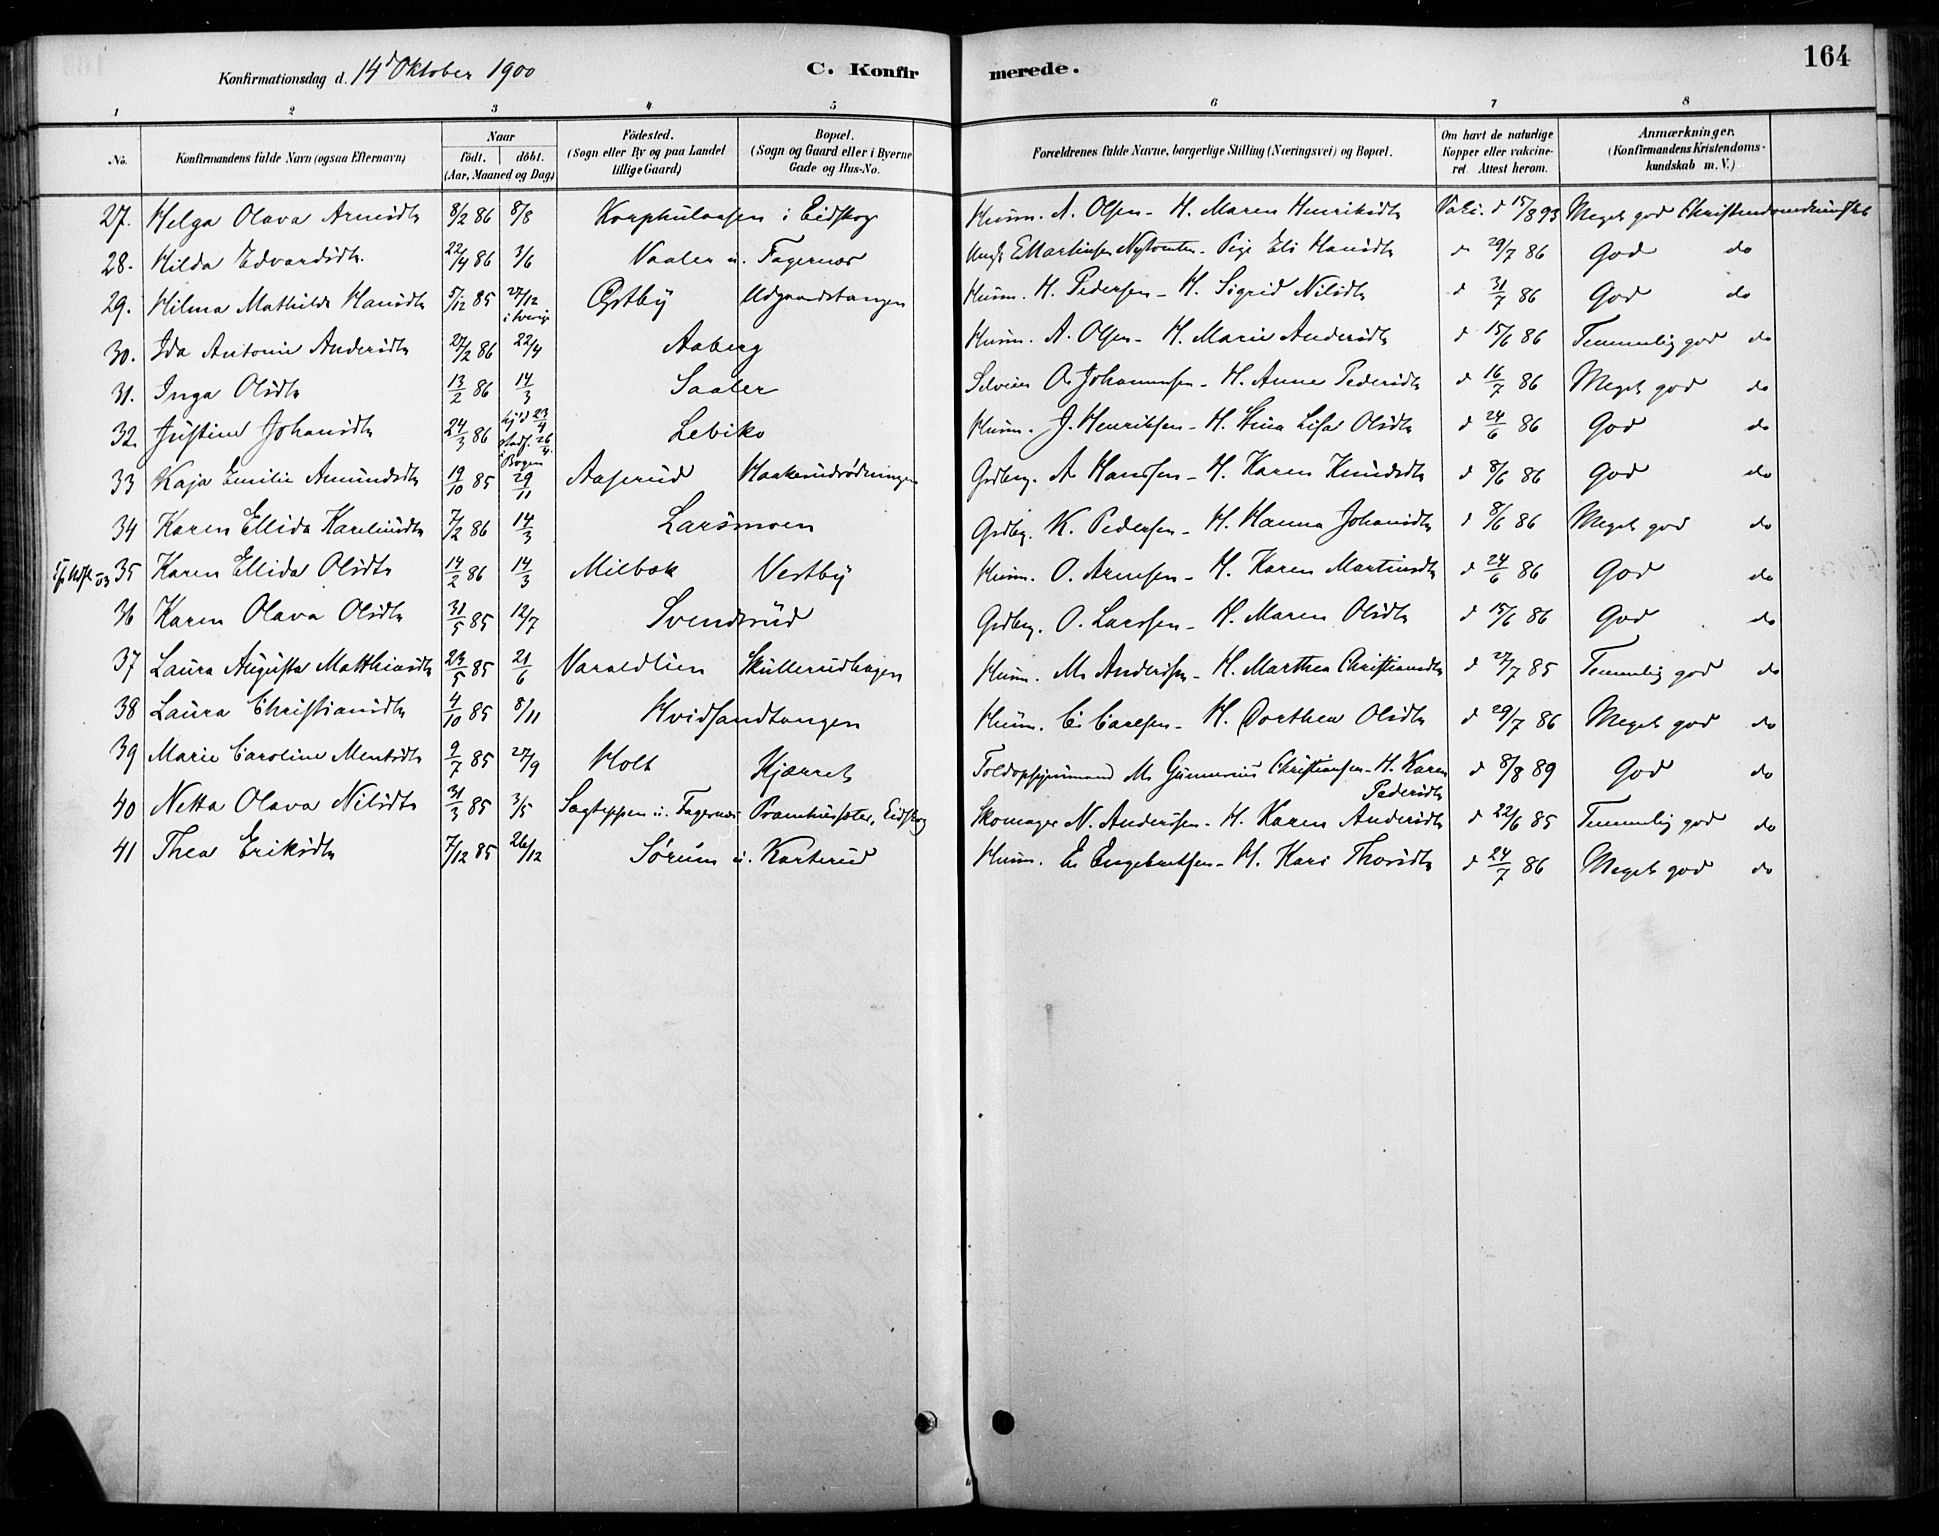 Konfirmationsdag d. 14d Oktober 1900
C. Konfirmerede.
164
1 2 3 4 5 6 7 8
No. Konfirmandens fulde Navn (ogsaa Efternavn) Naar födt. döbt. (Aar, Maaned og Dag) Födested. (Sogn eller By og paa Landet tillige Gaard) Bopæl. (Sogn og Gaard eller i Byerne Gade og Hus-No. Forældrenes fulde Navne, borgerlige Stilling (Næringsvei) og Bopæl. Om havt de naturlige Kopper eller vakcineret. Attest herom. Anmærkninger. (Konfirmandens Kristendomskundskab m. V.)
27. Helga Olava Arnesdtr 8/2 86 8/8 i Eidskog Husm. A. Olsen - H. Maren Henriksdtr Vakc. d 15/8 93 Meget god Christendomskundskab
28. Hilda Edvardsdtr. 22/4 86 3/6 Vaaler u. Fagernæs Ungk. E Martinsen - Pige Eli Hansdtr d 29/7 86 God do
29. Hilma Mathilde Hansdtr 5/12 85 27/12 i Sverige Østby Udgaardstangen Husm. H. Pedersen - H. Sigrid Nilsdtr d 31/7 86 God do
30. Ida Antonie Andersdtr 27/2 86 22/4 Aaberg Husm. A. Olsen - H. Marie Andersdtr d 15/6 86 Temmelig god do
31. Inga Olsdtr 13/2 86 14/3 Saaler Selveier O. Johannesen - H. Anne Pedersdtr d 16/7 86 Meget god do
32. Justine Johansdtr 24/3 86 hjd 23/4 stadf. 26/4 i Bogen Lebiko Husm. J. Henriksen - H. Stina Lisa Olsdtr d 24/6 86 God do
33 Kaja Emilie Amundsdtr 19/10 85 29/11 Aaserud Haakerudrødningen Gdbrg. A Hanssen - H. Karen Knudsdtr d 8/6 86 God do
34 Karen Ellida Karlsdtr 7/2 86 14/3 Larsmoen Gdbrg. K. Pedersen - H. Hanna Johansdtr d 8/6 86 Meget god do
35 Karen Ellida Olsdtr 14/2 86 14/3 Milbæk Vestby Husm. O. Arnesen - H. Karen Martinsdtr d 24/6 86 God do
36 Karen Olava Olsdtr 31/5 85 12/7 Svendsrud Gdbrg. O. Larssen - H. Maren Olsdtr d 15/6 86 God do
37 Laura Augusta Matthiasdtr 23/5 85 21/6 Varaldlien Skullerudhagen Husm. M. Anderssen - H. Marthea Christiansdtr d 27/7 85 Temmelig god do
38 Laura Christiansdtr 4/10 85 8/11 Hvidsandtangen Husm. C. Carlsen - H. Dorthea Olsdtr d 29/7 86 Meget god do
39 Marie Caroline Mentsdtr 9/7 85 27/9 Holt Kjærret Toldopsynsmand M. Gunnerius Christiansen - H. Karen Pedersdtr d 8/8 89 God do
40 Netta Olava Nilsdtr 31/3 85 3/5 Sagteppen u. Fagernæs Pramhussæter, Eidskog Skomager N. Andersen - H. Karen Andersdtr d 22/6 85 Temmelig god do
41 Thea Eriksdtr 7/12 85 26/12 Sørum u. Karterud Husm. E. Engebretsen - H. Kari Thorsdtr d 24/7 86 Meget god do